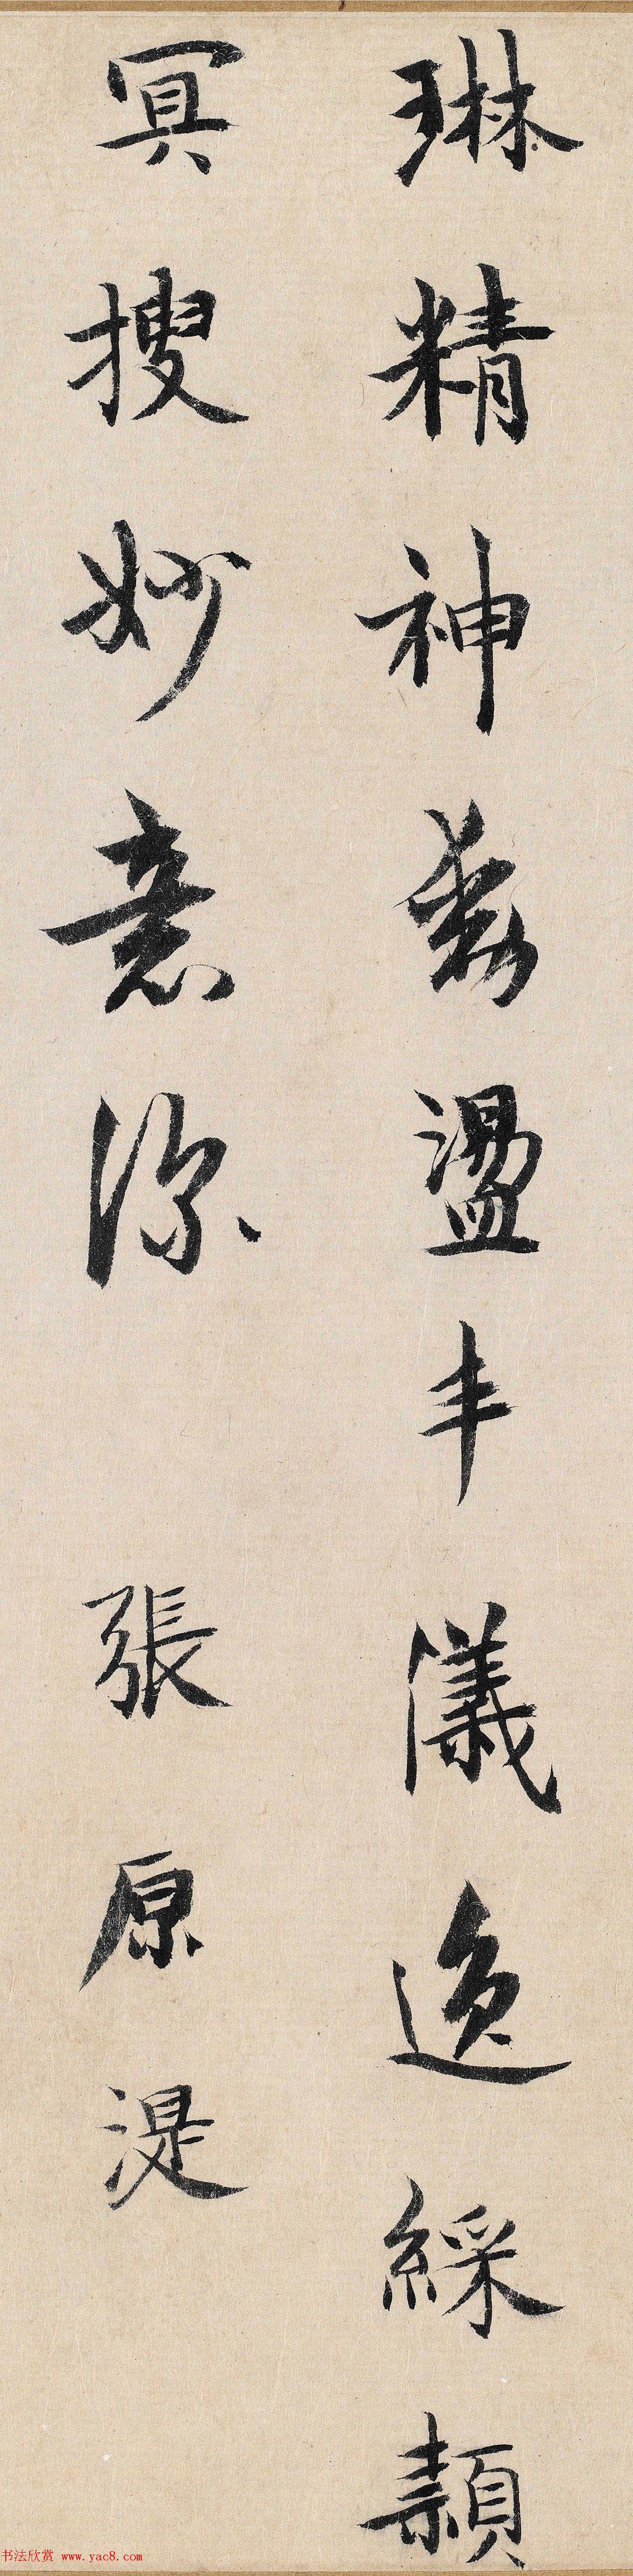 琳精神發盪丰儀逸綵頛
冥搜妙意深 張原湜
书法欣赏 www.yac8.com